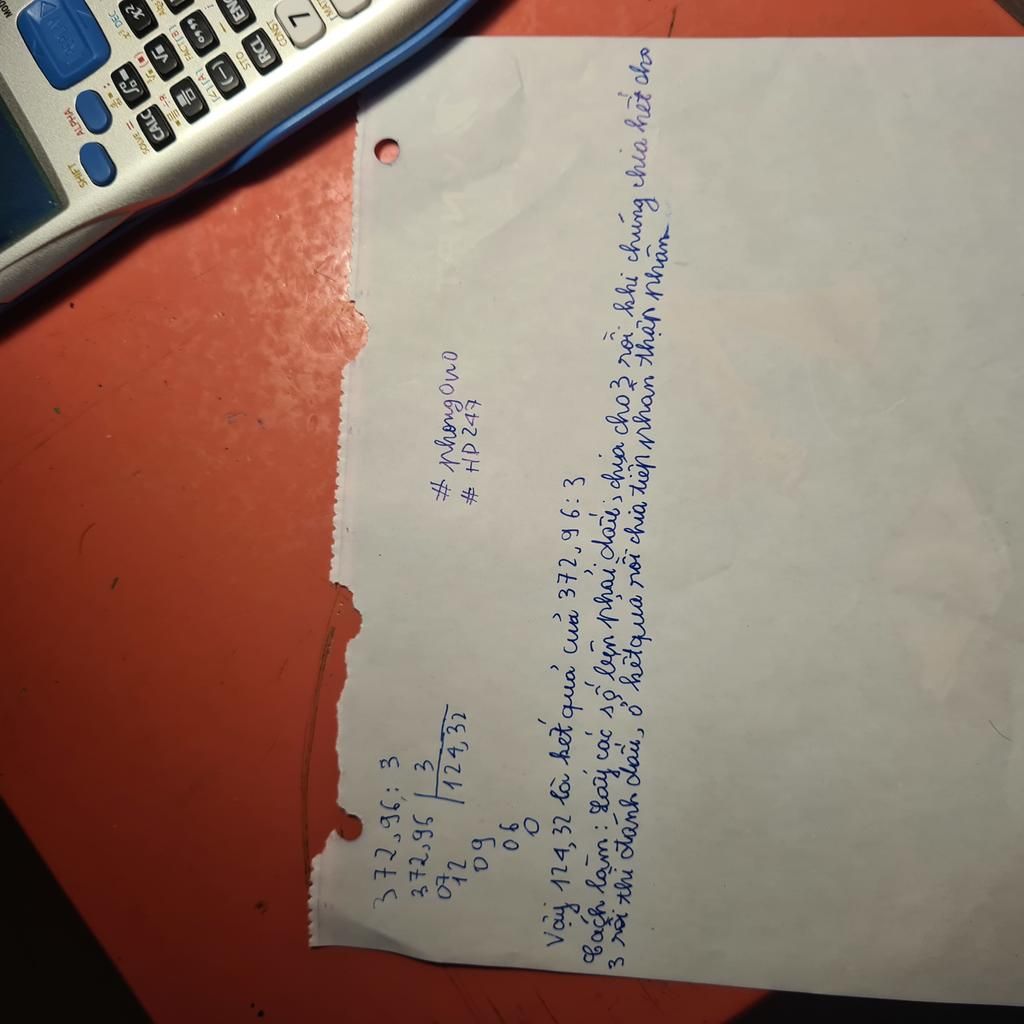 372,96 : 3
372,96 | 3
07 | 124,32
12
09
06
0
# phongOwO
# HD247
Vậy 124,32 là kết quả của 372,96 : 3
Cách làm : Lấy các số bên phải dấu, chia cho 3 rồi khi chúng chia hết cho
3 rồi thì đánh dấu, ở kết quả rồi chia tiếp phần thập phân
SHIFT
ALPHA
SOLVE =
CALC
x²
DEC
√
FACT
(-)
STO
RCL
ENG
CONST
7